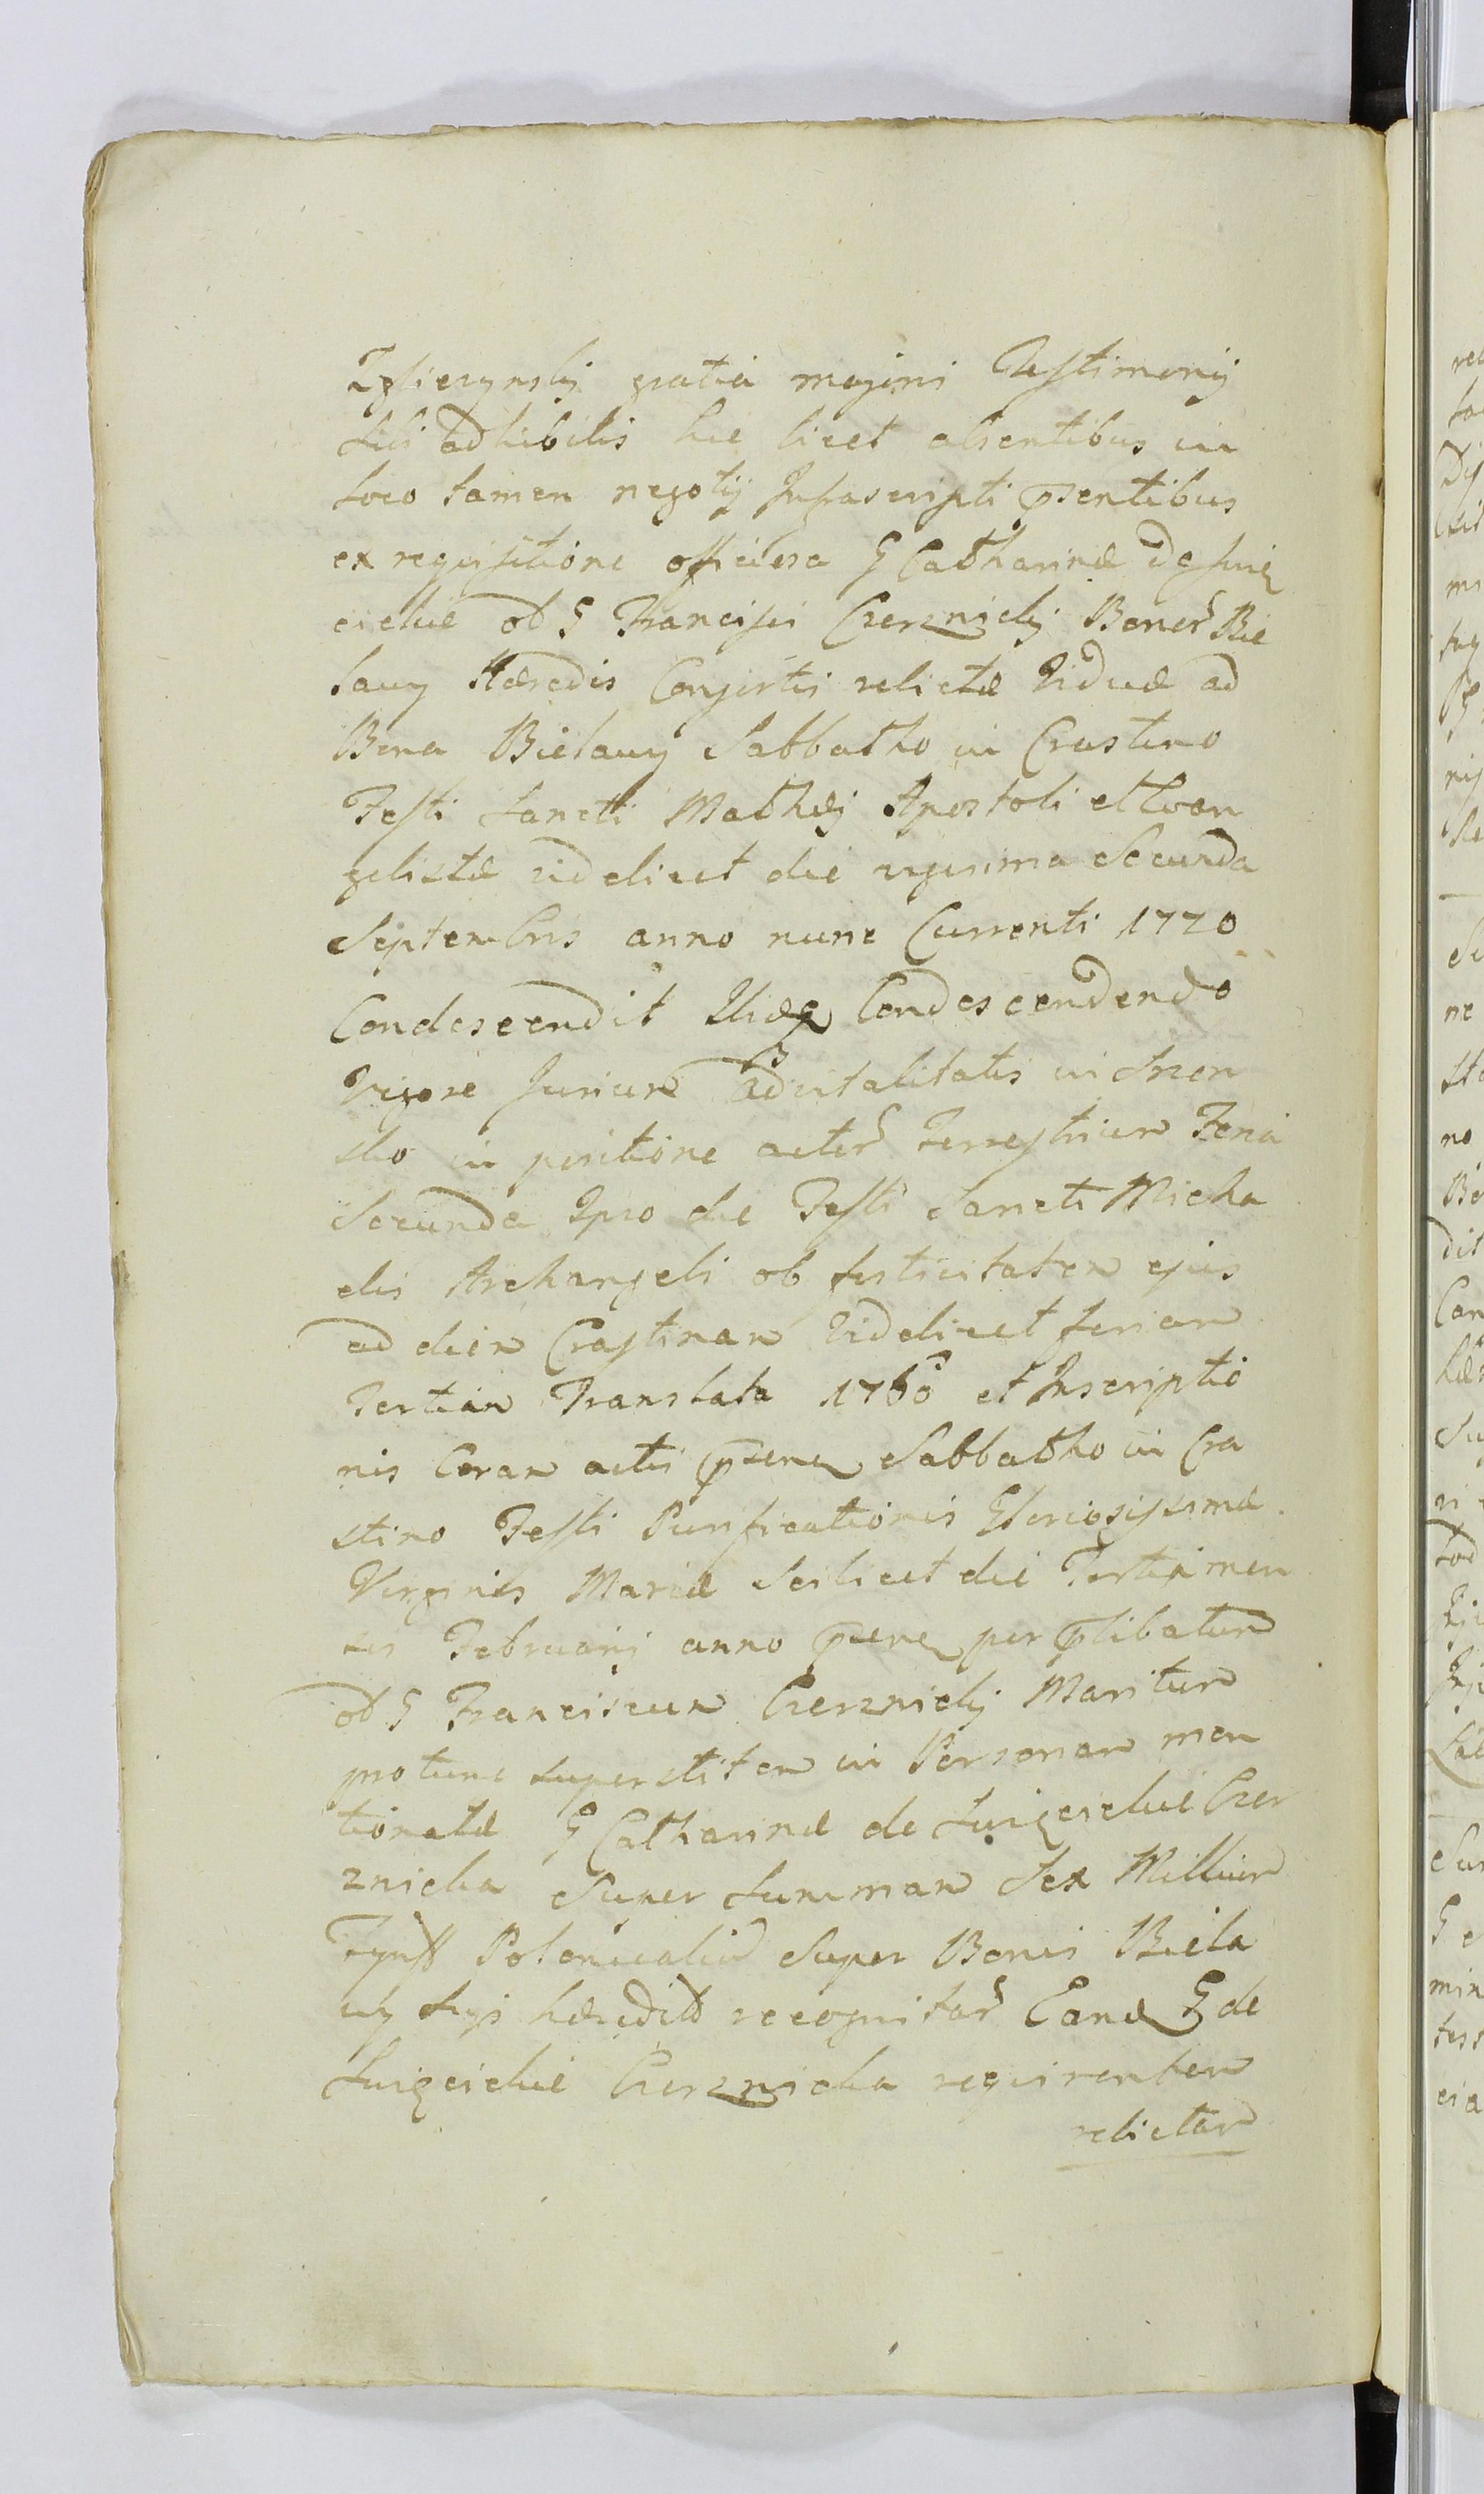 gratia majoris Testimonij
sibi adhibitis hic licet absentibus in
loco tamen negotij Infrascripti prsentibus
ex requisitione officiosa G Catharinæ de Suię
cickie od G Francisci Czerznickij Bonor Bie
lawy Hæredis Consortis relictæ Viduæ ad
Bona Bielawy Sabbatho in Crastino
Festi Sancti Mathæj Apostoli et Evan
gelistæ videlicet die vigesima Secunda
Septembris anno nunc Currenti 1770
Condescendit Ibidq Condescendendo
Vigore Jurium advitalitatis in Srzen
sko in positione actor Terrestrium Feria
Secunda Ipso die Festi Sancti Micha
elis Archangeli ob festivitatem ejus
ad diem Crastinam Videlicet feriam
Tertiam Translata 1760 et Inscriptio
nis Coram actis prsenq Sabbatho in Cra
stino Festi Purificationis Gloriosissimæ
Virginis Mariæ Scilicet die Tertia men
sis Februarij anno prsenq per prlibatum
od G Franciscum Czerznickij Maritum
pro tunc superstitem in Personam men
tionatæ G Catharinæ de Suięcickie Czer
znicka Super Summam Sex Millium
Tynff Polonicaliu Super Bonis Biela
wy suis hæredit recognitar Eand G de
Suięcickie Czerznicka requirentem
relictam